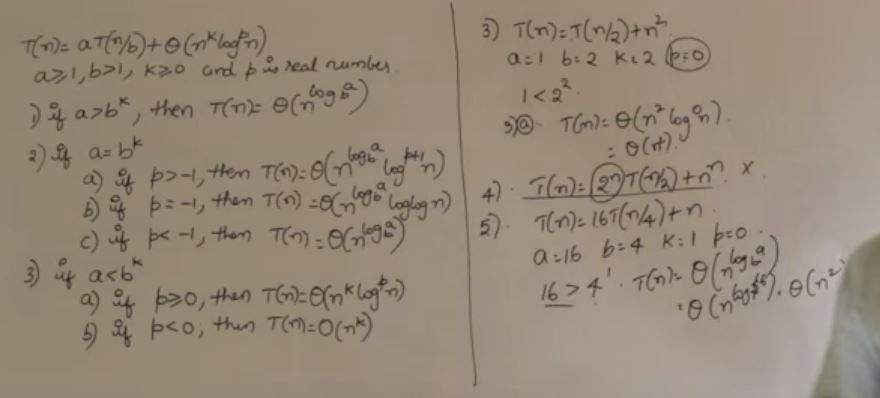 T(n) = aT(n/b) + θ(n^k log^p n)
a≥1, b>1, k≥0 and p is real number.
1) if a>b^k, then T(n) = θ(n^log_b^a)
2) if a=b^k
a) if p>-1, then T(n)=θ(n^log_b^a log^p+1 n)
b) if p=-1, then T(n)=θ(n^log_b^a loglogn)
c) if p<-1, then T(n)=θ(n^log_b^a)
3) if a<b^k
a) if p≥0, then T(n)=θ(n^k log^p n)
b) if p<0, then T(n)=O(n^k)
3) T(n)=T(n/2)+n^2
a=1 b=2 k=2 p=0
1<2^2.
3)a. T(n)=θ(n^2 log^0 n).
= θ(n^2).
4). T(n)=2^n T(n/2)+n^n. x
5). T(n)=16T(n/4)+n.
a=16 b=4 k=1 p=0.
16>4^1. T(n)=θ(n^log_b^a)
=θ(n^log_4^16).θ(n^2